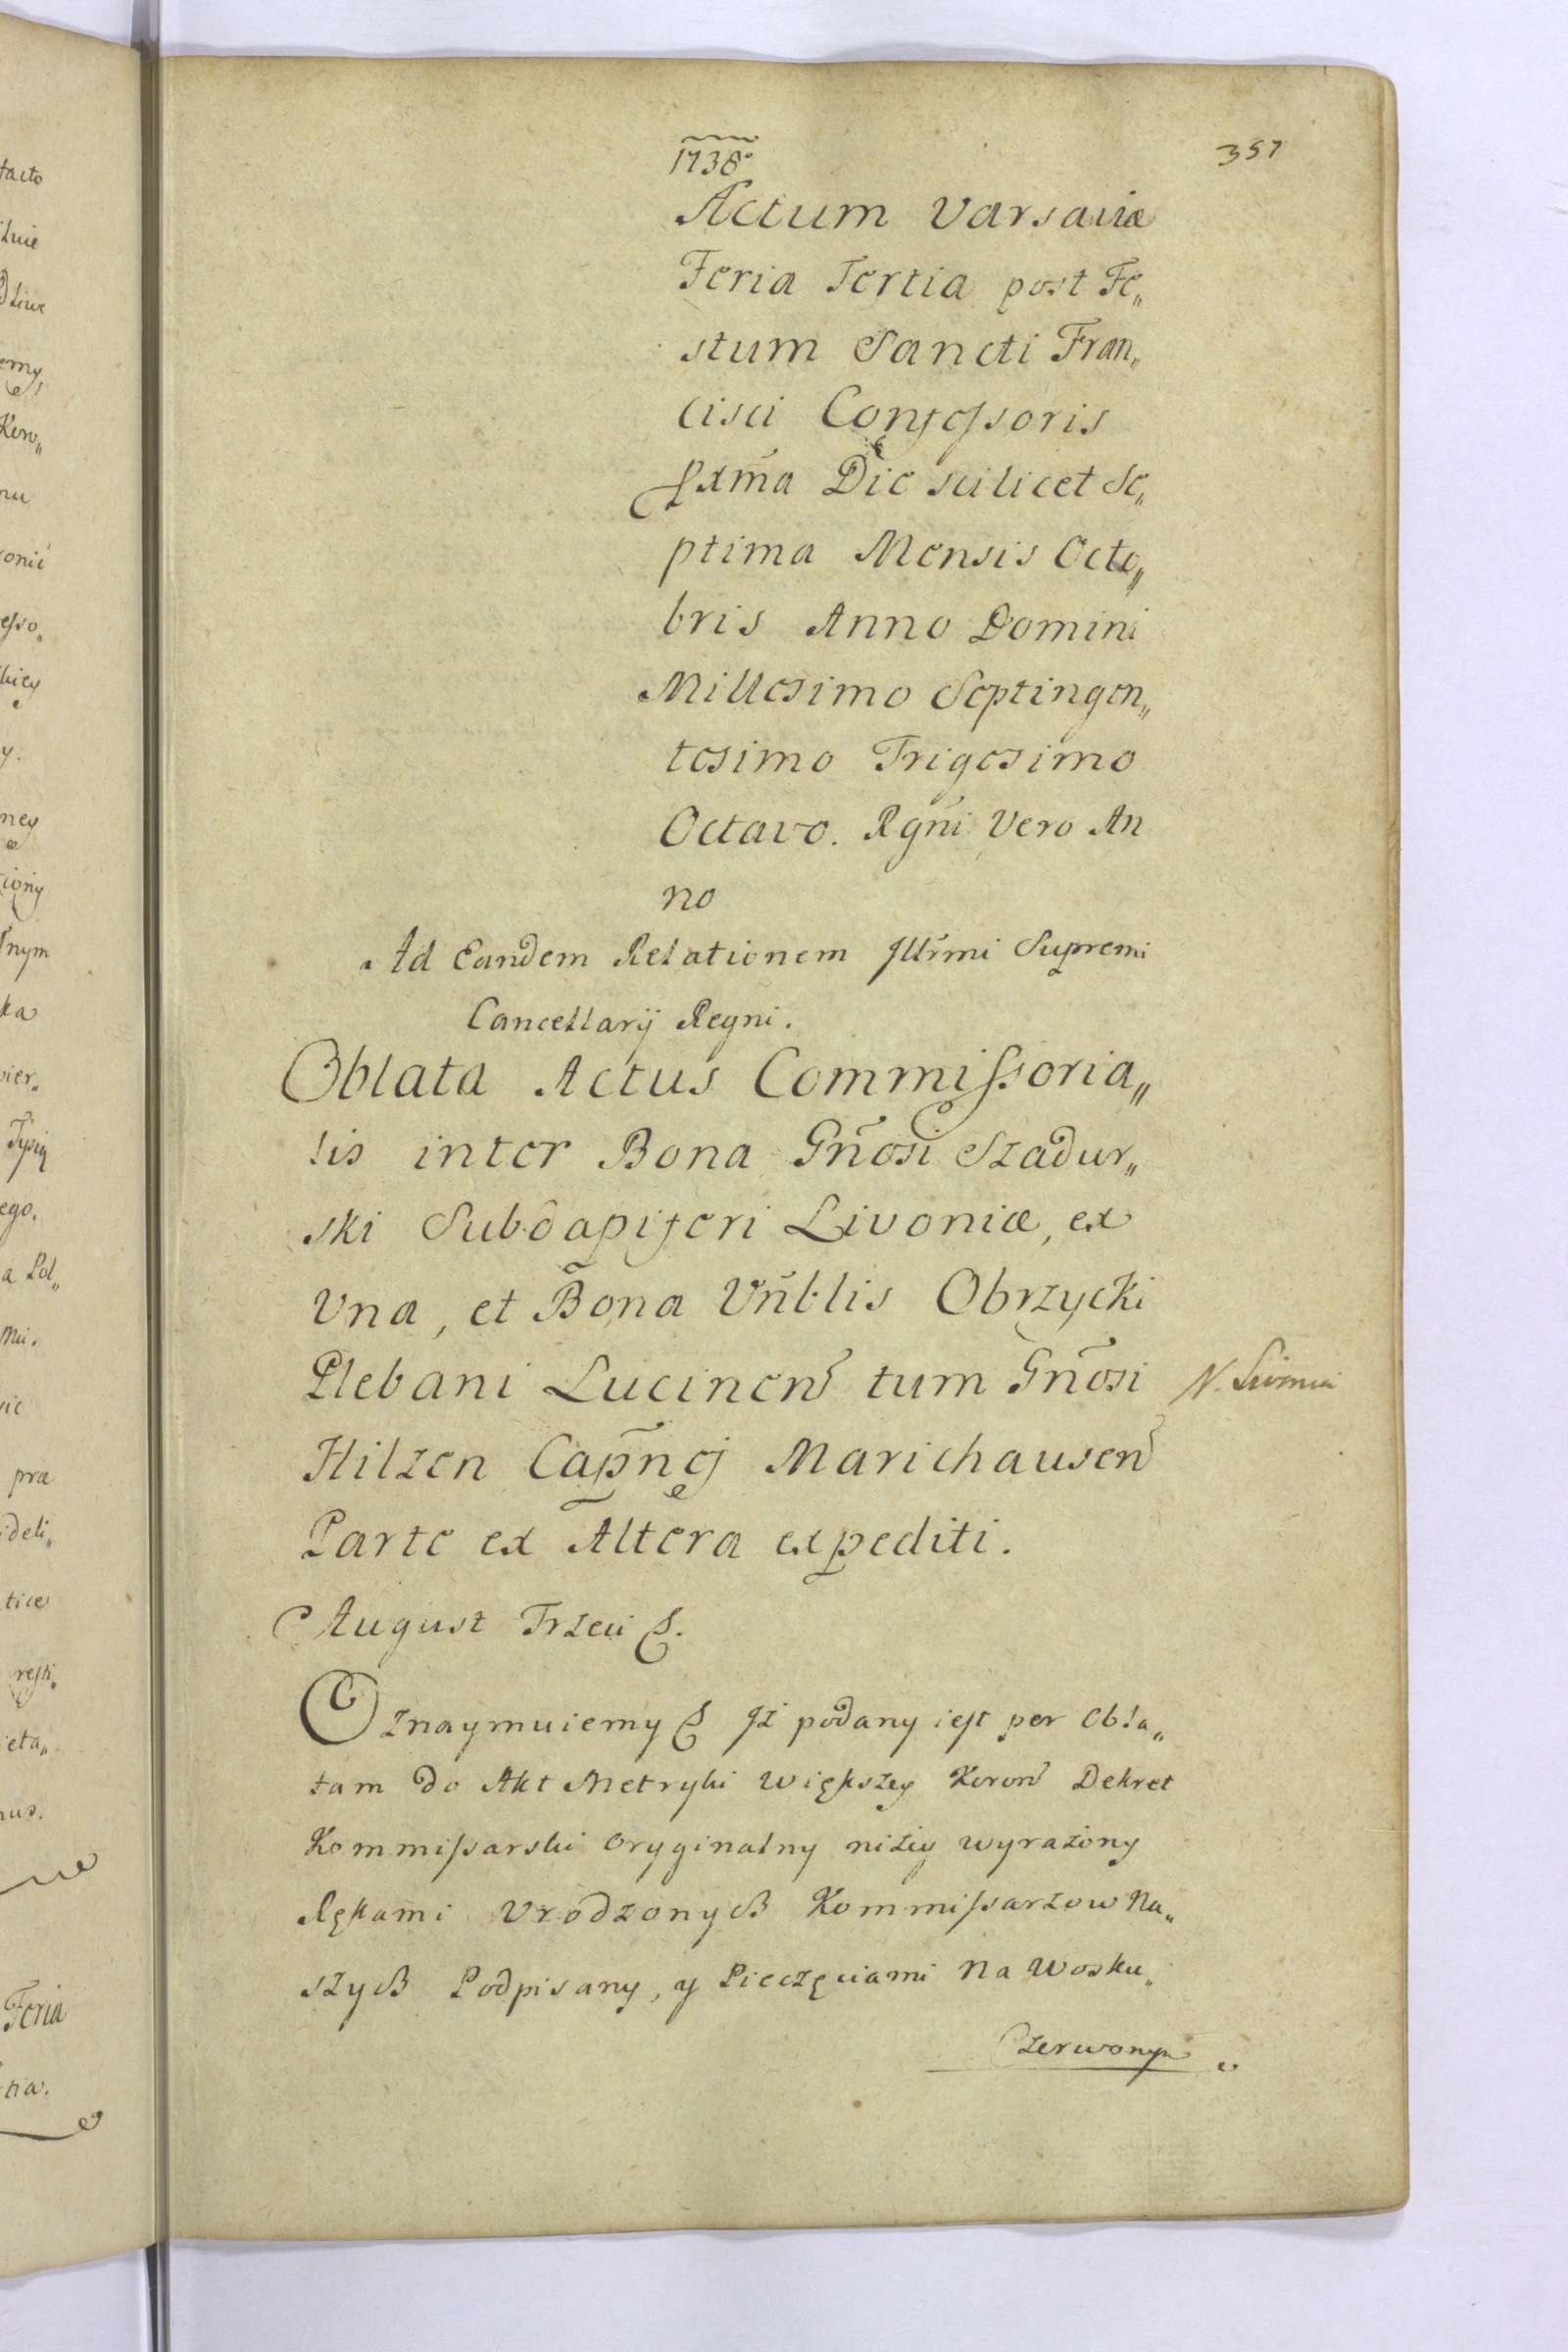 1738º
357
Actum Varsaviæ
Feria Tertia post Fe„
stum Sancti Fran„
cisci Confessoris
pxm̃a Die scilicet Se„
ptima Mensis Octo„
bris Anno Domini
Millesimo Septingen„
tesimo Trigesimo
Octavo. Rgñi Vero An
no
Ad Eandem Relationem Illr̃mi Supremi
Cancellarij Regni.
Oblata Actus Commissoria„
lis inter Bona Gñosi Szadur„
ski Subdapiferi Livoniæ, ex
Vna, et Bona Vñblis Obrzycki
Plebani Lucinen̄ tum Gñosi
N. Livonia
Hilzen Cap̃nej Marichausen̄
Parte ex Altera expediti.
August Trzeci &.
Oznaymuiemy & Iż podany iest per Obla„
tam do Akt Metryki Większey Koron̄ Dekret
Kommissarski Oryginalny niżey wyrażony
Rękami Vrodzonych Kommissarzow Na„
szych Podpisany, y Pieczęciami Na Wosku„
Czerwonym
tacto
emy,
Koro„
nu
onić
esso„
y.
ney
nym
ka
wier„
Tysią
ego.
a Pol„
præ
ideli„
tice
resti„
ieta„
nus.
Feria
tia.